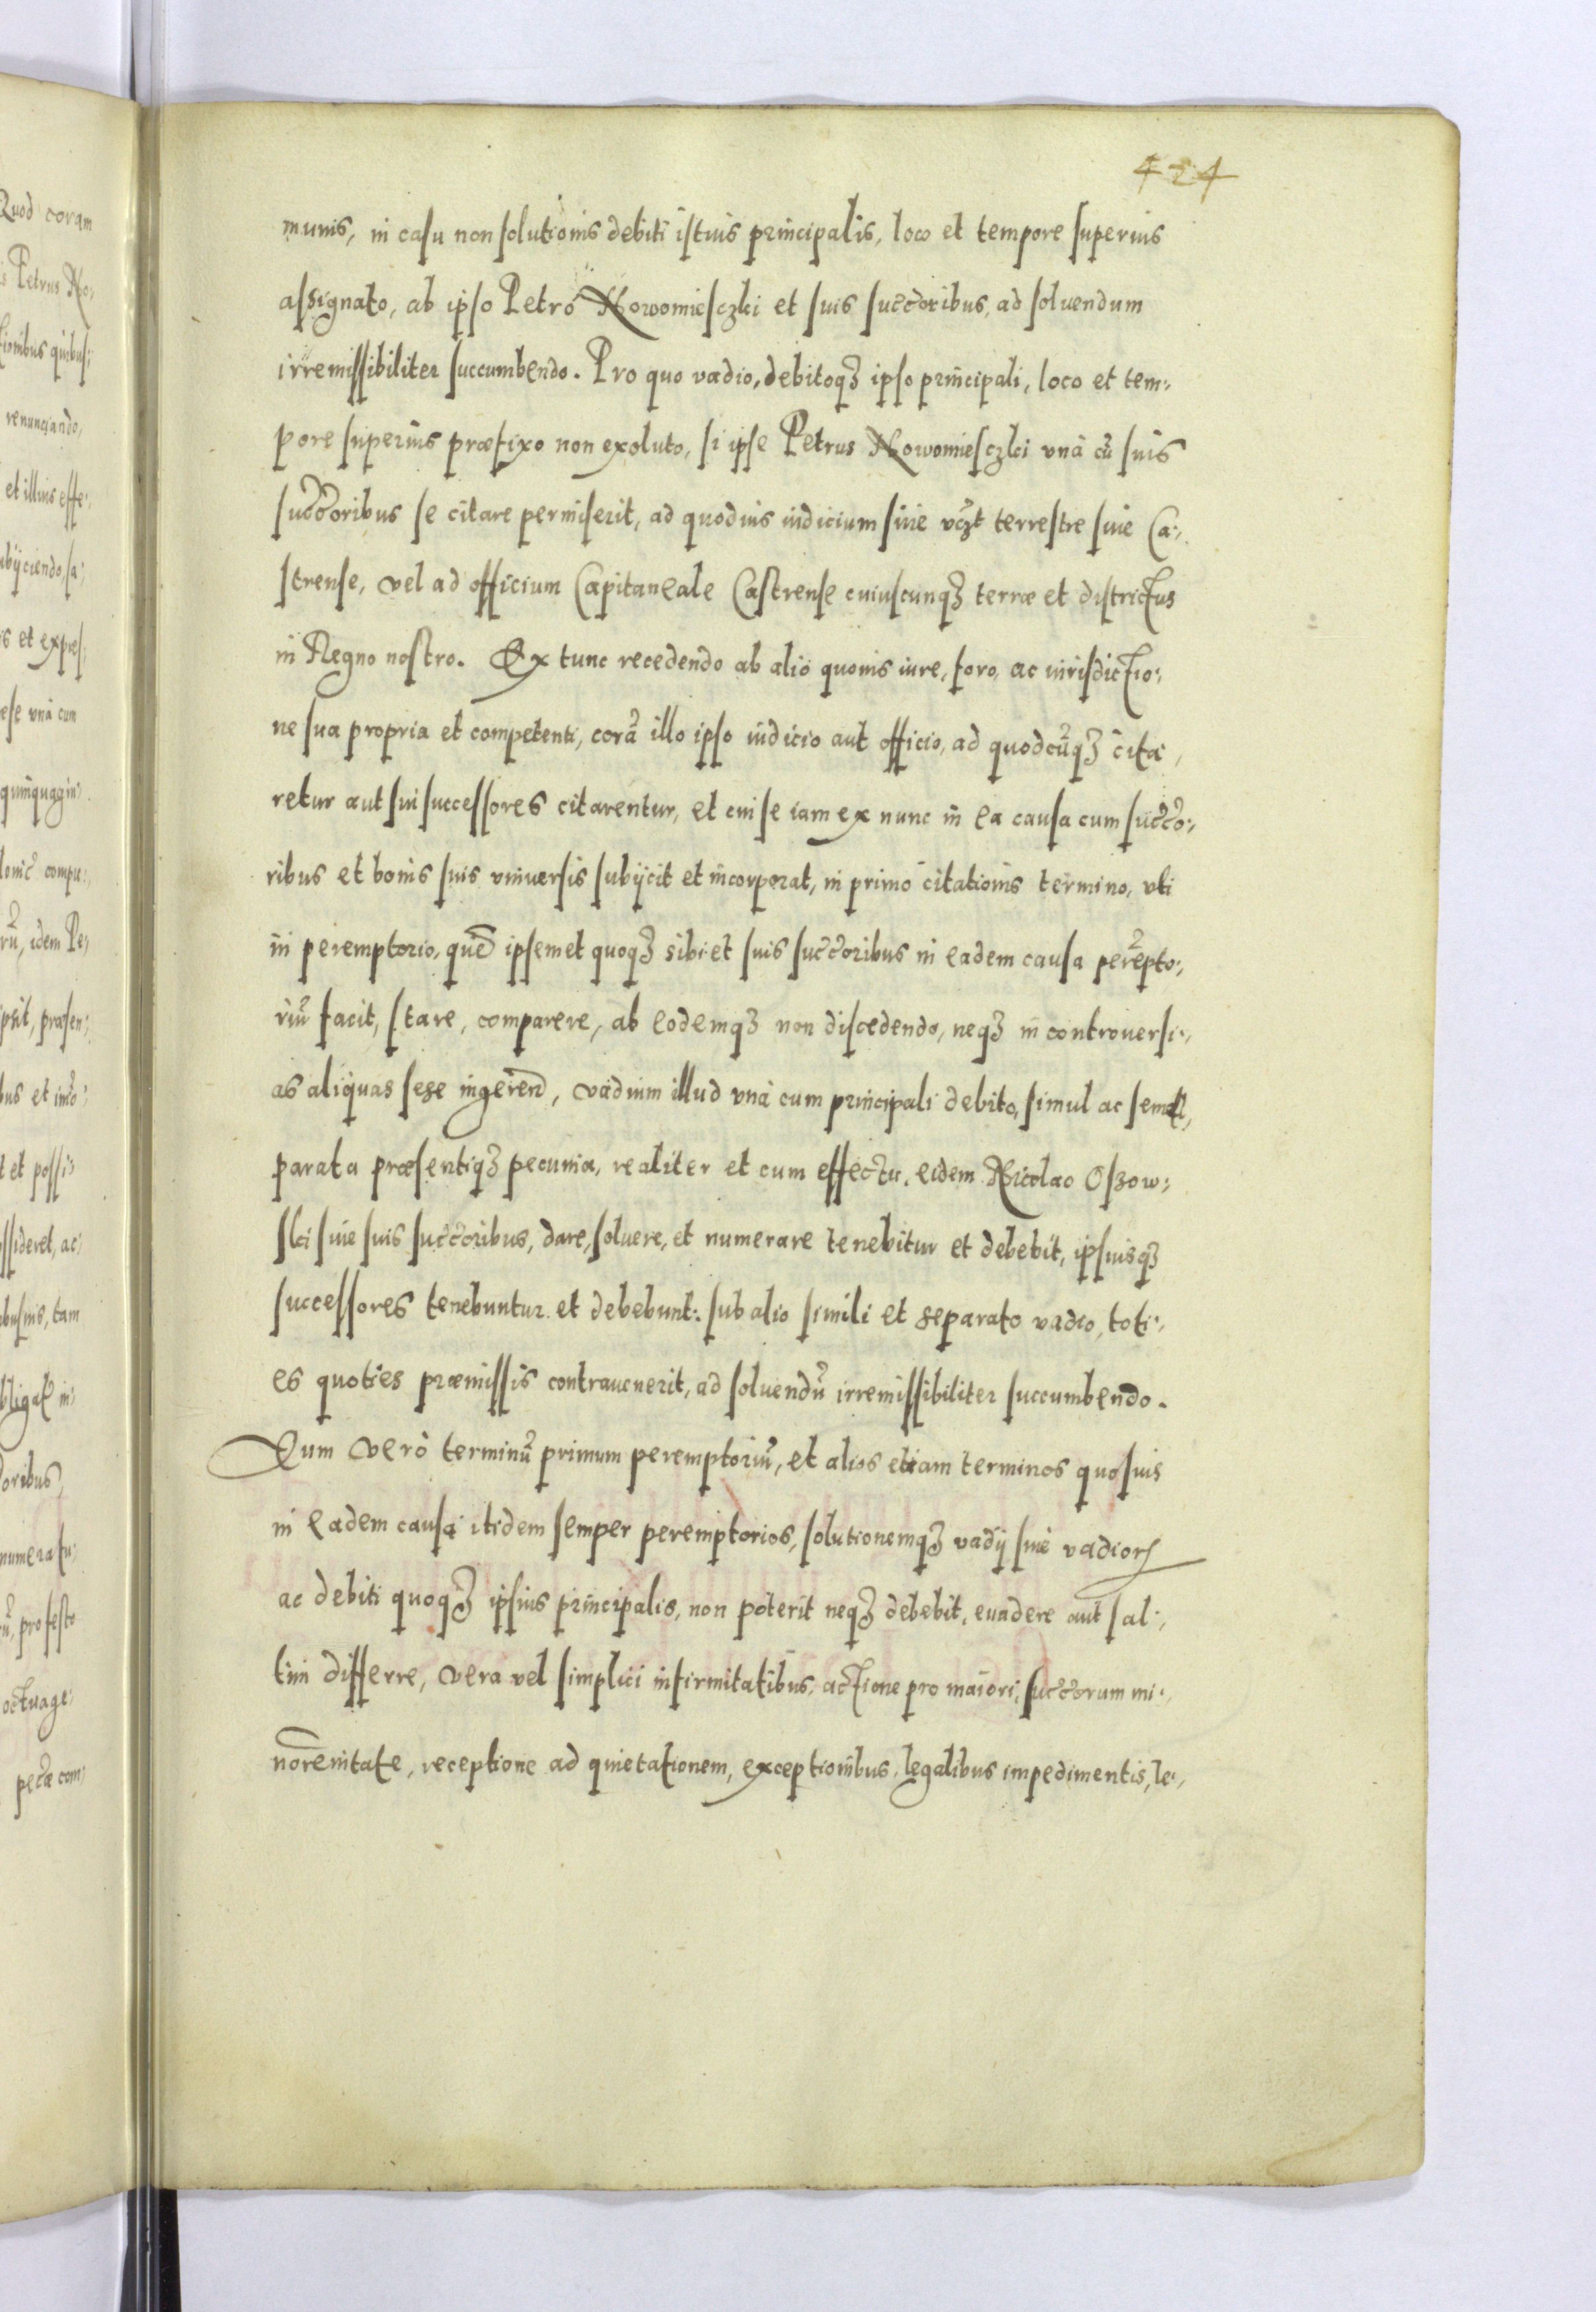 424
munis, in casu non solutionis debiti istius principalis, loco et tempore superius
assignato, ab ipso Petro Nowomieszki et suis succ̄oribus, ad soluendum
irremissibiliter succumbendo. Pro quo vadio, debitoqꝫ ipso principali, loco et tem:
pore superius præfixo non exoluto, si ipse Petrus Nowomiesczki vnà cū suis
succ̄oribus se citare permiserit, ad quoduis iudicium siue vcꝫt terrestre siue Ca:
strense, vel ad officium Capitaneale Castrense cuiuscunqꝫ terræ et districtus
in Regno nostro. Ex tunc recedendo ab alio quouis iure, foro, ac iurisdictio:
ne sua propria et competenti, corā illo ipso iudicio aut officio, ad quodcūqꝫ cita,
retur aut sui successores citarentur, et cui se iam ex nunc in ea causa cum succ̄o:
ribus et bonis suis vniuersis subijcit et incorporat, in primo citationis termino, vti
in peremptorio, quē ipsemet quoqꝫ sibi et suis succ̄oribus in eadem causa perēpto:
riū facit, stare, comparere, ab eodemqꝫ non discedendo, neqꝫ in controuersi:
as aliquas sese ingeren̄, vadium illud vnà cum principali debito, simul ac semel,
parata præsentiqꝫ pecunia, realiter et cum effectu, eidem Nicolao Oszow:
ski siue suis succ̄oribus, dare, soluere, et numerare tenebitur et debebit, ipsiusqꝫ
successores tenebuntur et debebunt: sub alio simili et separato vadio, toti:
es quoties præmissis contrauenerit, ad soluendū irremissibiliter succumbendo.
Eum verò terminū primum peremptoriū, et alios etiam terminos quosuis
in eadem causa itidem semper peremptorios, solutionemqꝫ vadij siue vadioꝝ
ac debiti quoqꝫ ipsius principalis, non poterit neqꝫ debebit, euadere aut sal:
tim differre, vera vel simplici infirmitatibus, actione pro maiori, succ̄orum mi:
norenitate, receptione ad quietationem, exceptionibus, legalibus impedimentis, le: